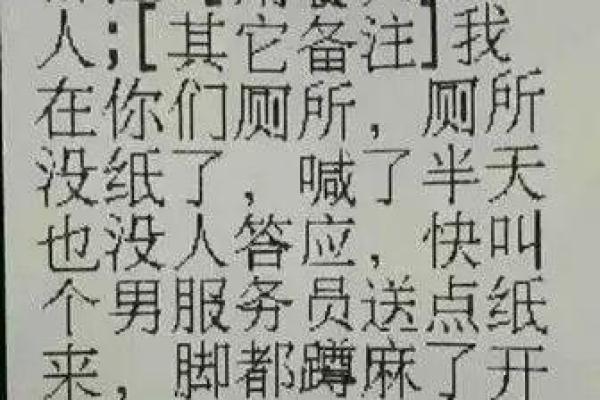 人;[其它备注]我
在你们厕所，厕所
没纸了，喊了半天
也没人答应，快叫
个男服务员送点纸
来，脚都蹲麻了开